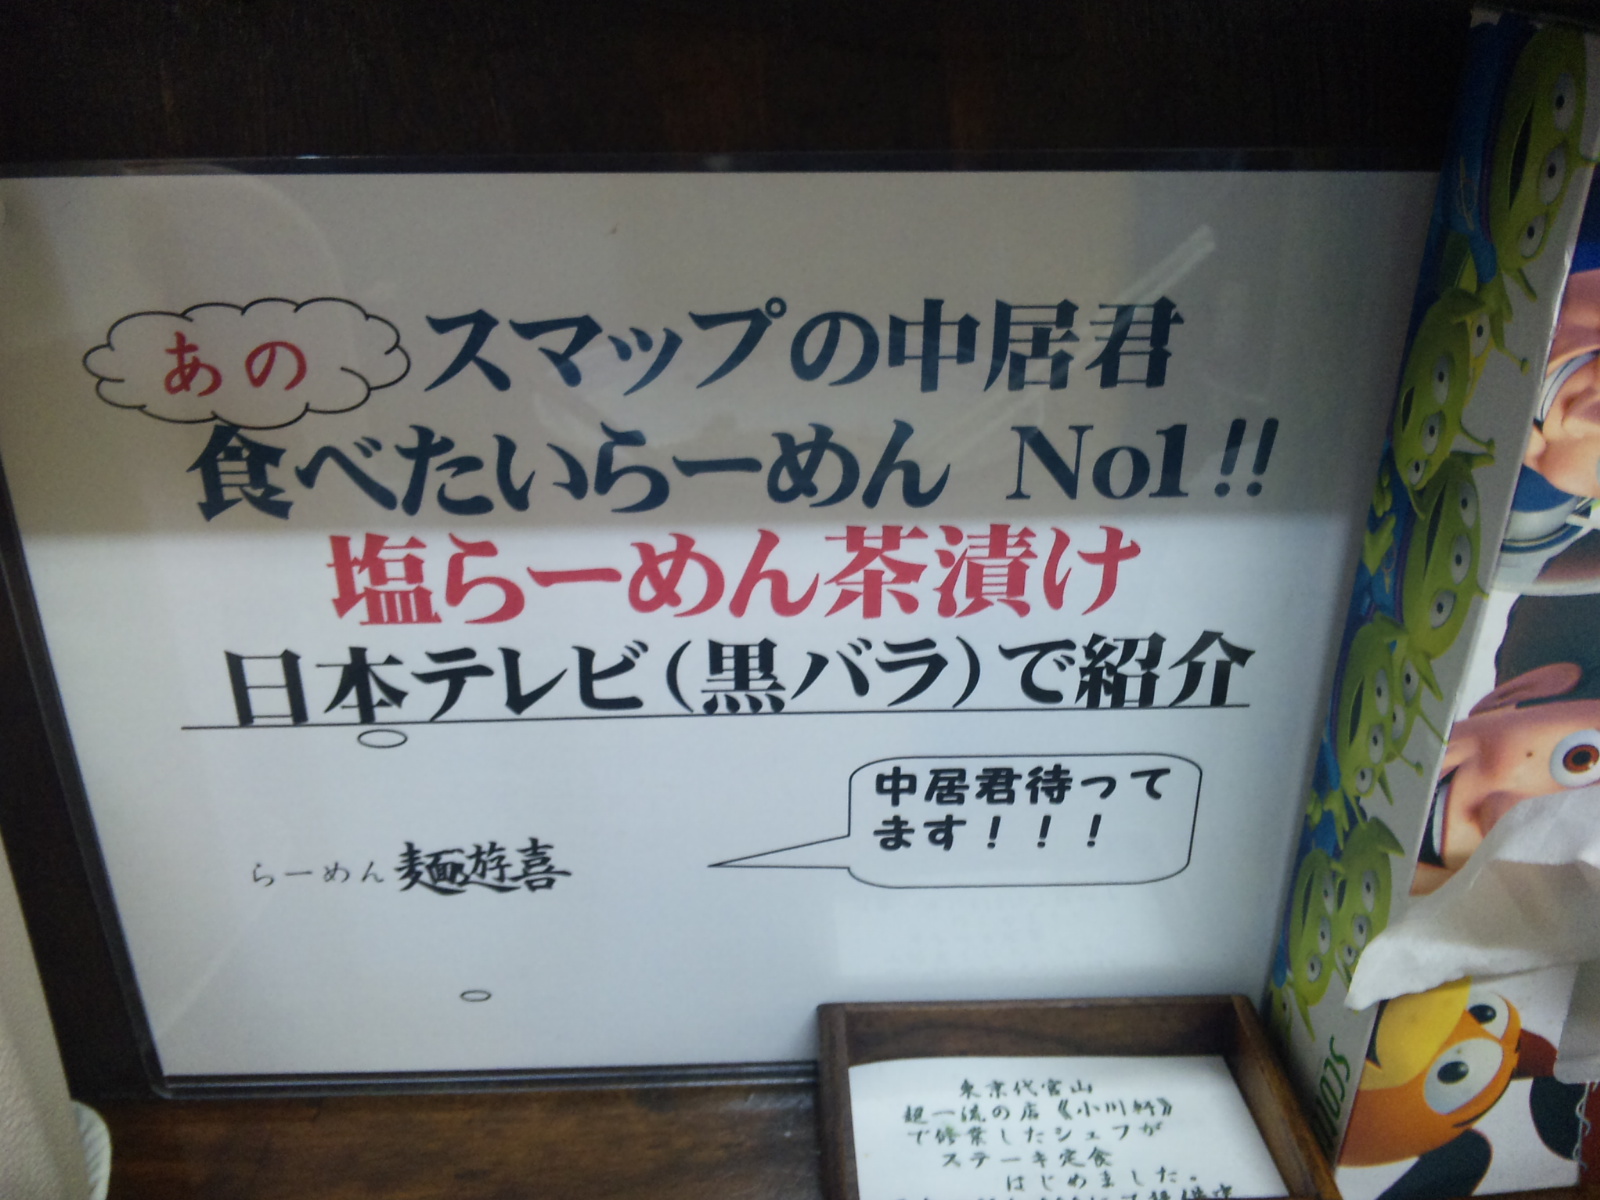 あの
スマップの中居君
食べたいらーめん No1!!
塩らーめん茶漬け
日本テレビ(黒バラ)で紹介
中居君待って
ます!!!
らーめん 麺遊喜
東京代官山
超一流の店《小川軒》
で修業したシェフが
ステーキ定食
はじめました。